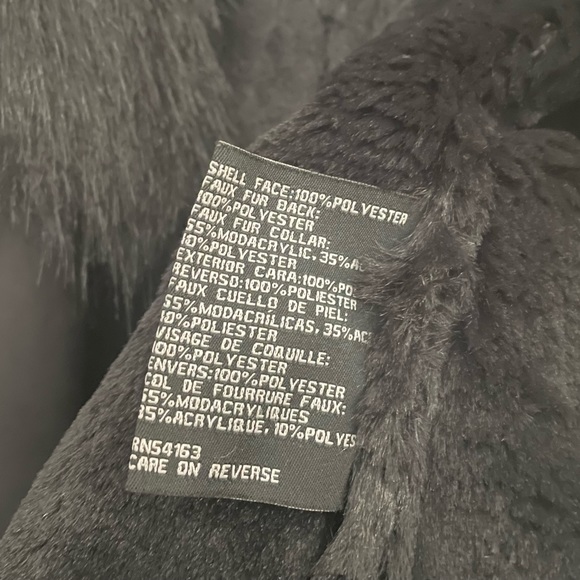 SHELL FACE:100%POLYESTER
FAUX FUR BACK:
100%POLYESTER
FAUX FUR COLLAR:
55%MODACRYLIC,35%AC
10%POLYESTER
EXTERIOR CARA:100%PO
REVERSO:100%POLIESTER
FAUX CUELLO DE PIEL:
55%MODACRÍLICAS,35%AC
10%POLYESTER
VISAGE DE COQUILLE:
100%POLYESTER
ENVERS:100%POLYESTER
COL DE FOURRURE FAUX:
55%MODACRYLIQUES
35%ACRYLIQUE,10%POLYES
RN54163
CARE ON REVERSE